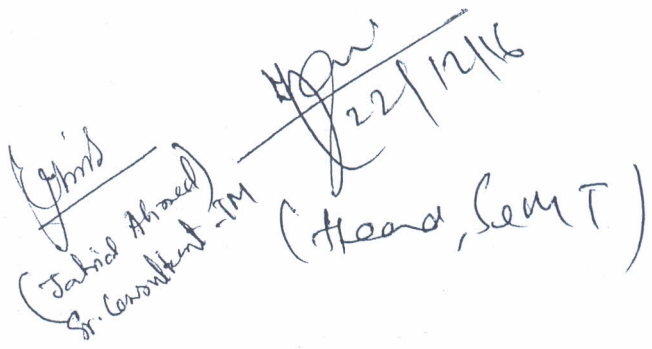 (Jahid Ahmed)
Sr. Consultant - TM
22/12/16
(Head, SeMT)